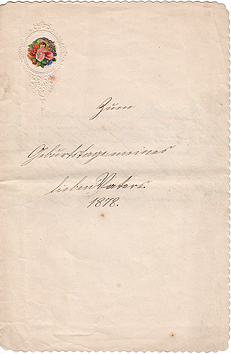 Zum
Geburtstage meines
lieben Vaters.
1878.